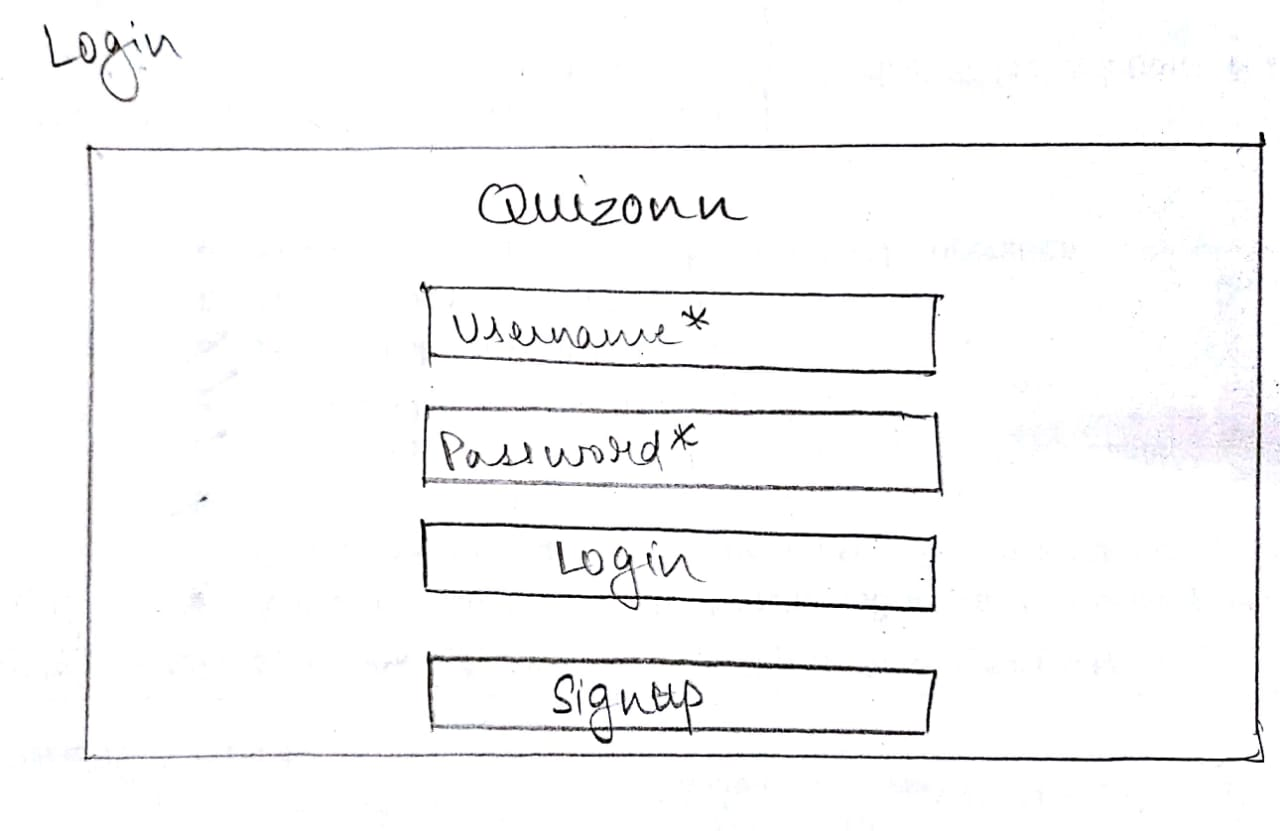 Login
Quizonn
Username*
Password*
Login
Signup